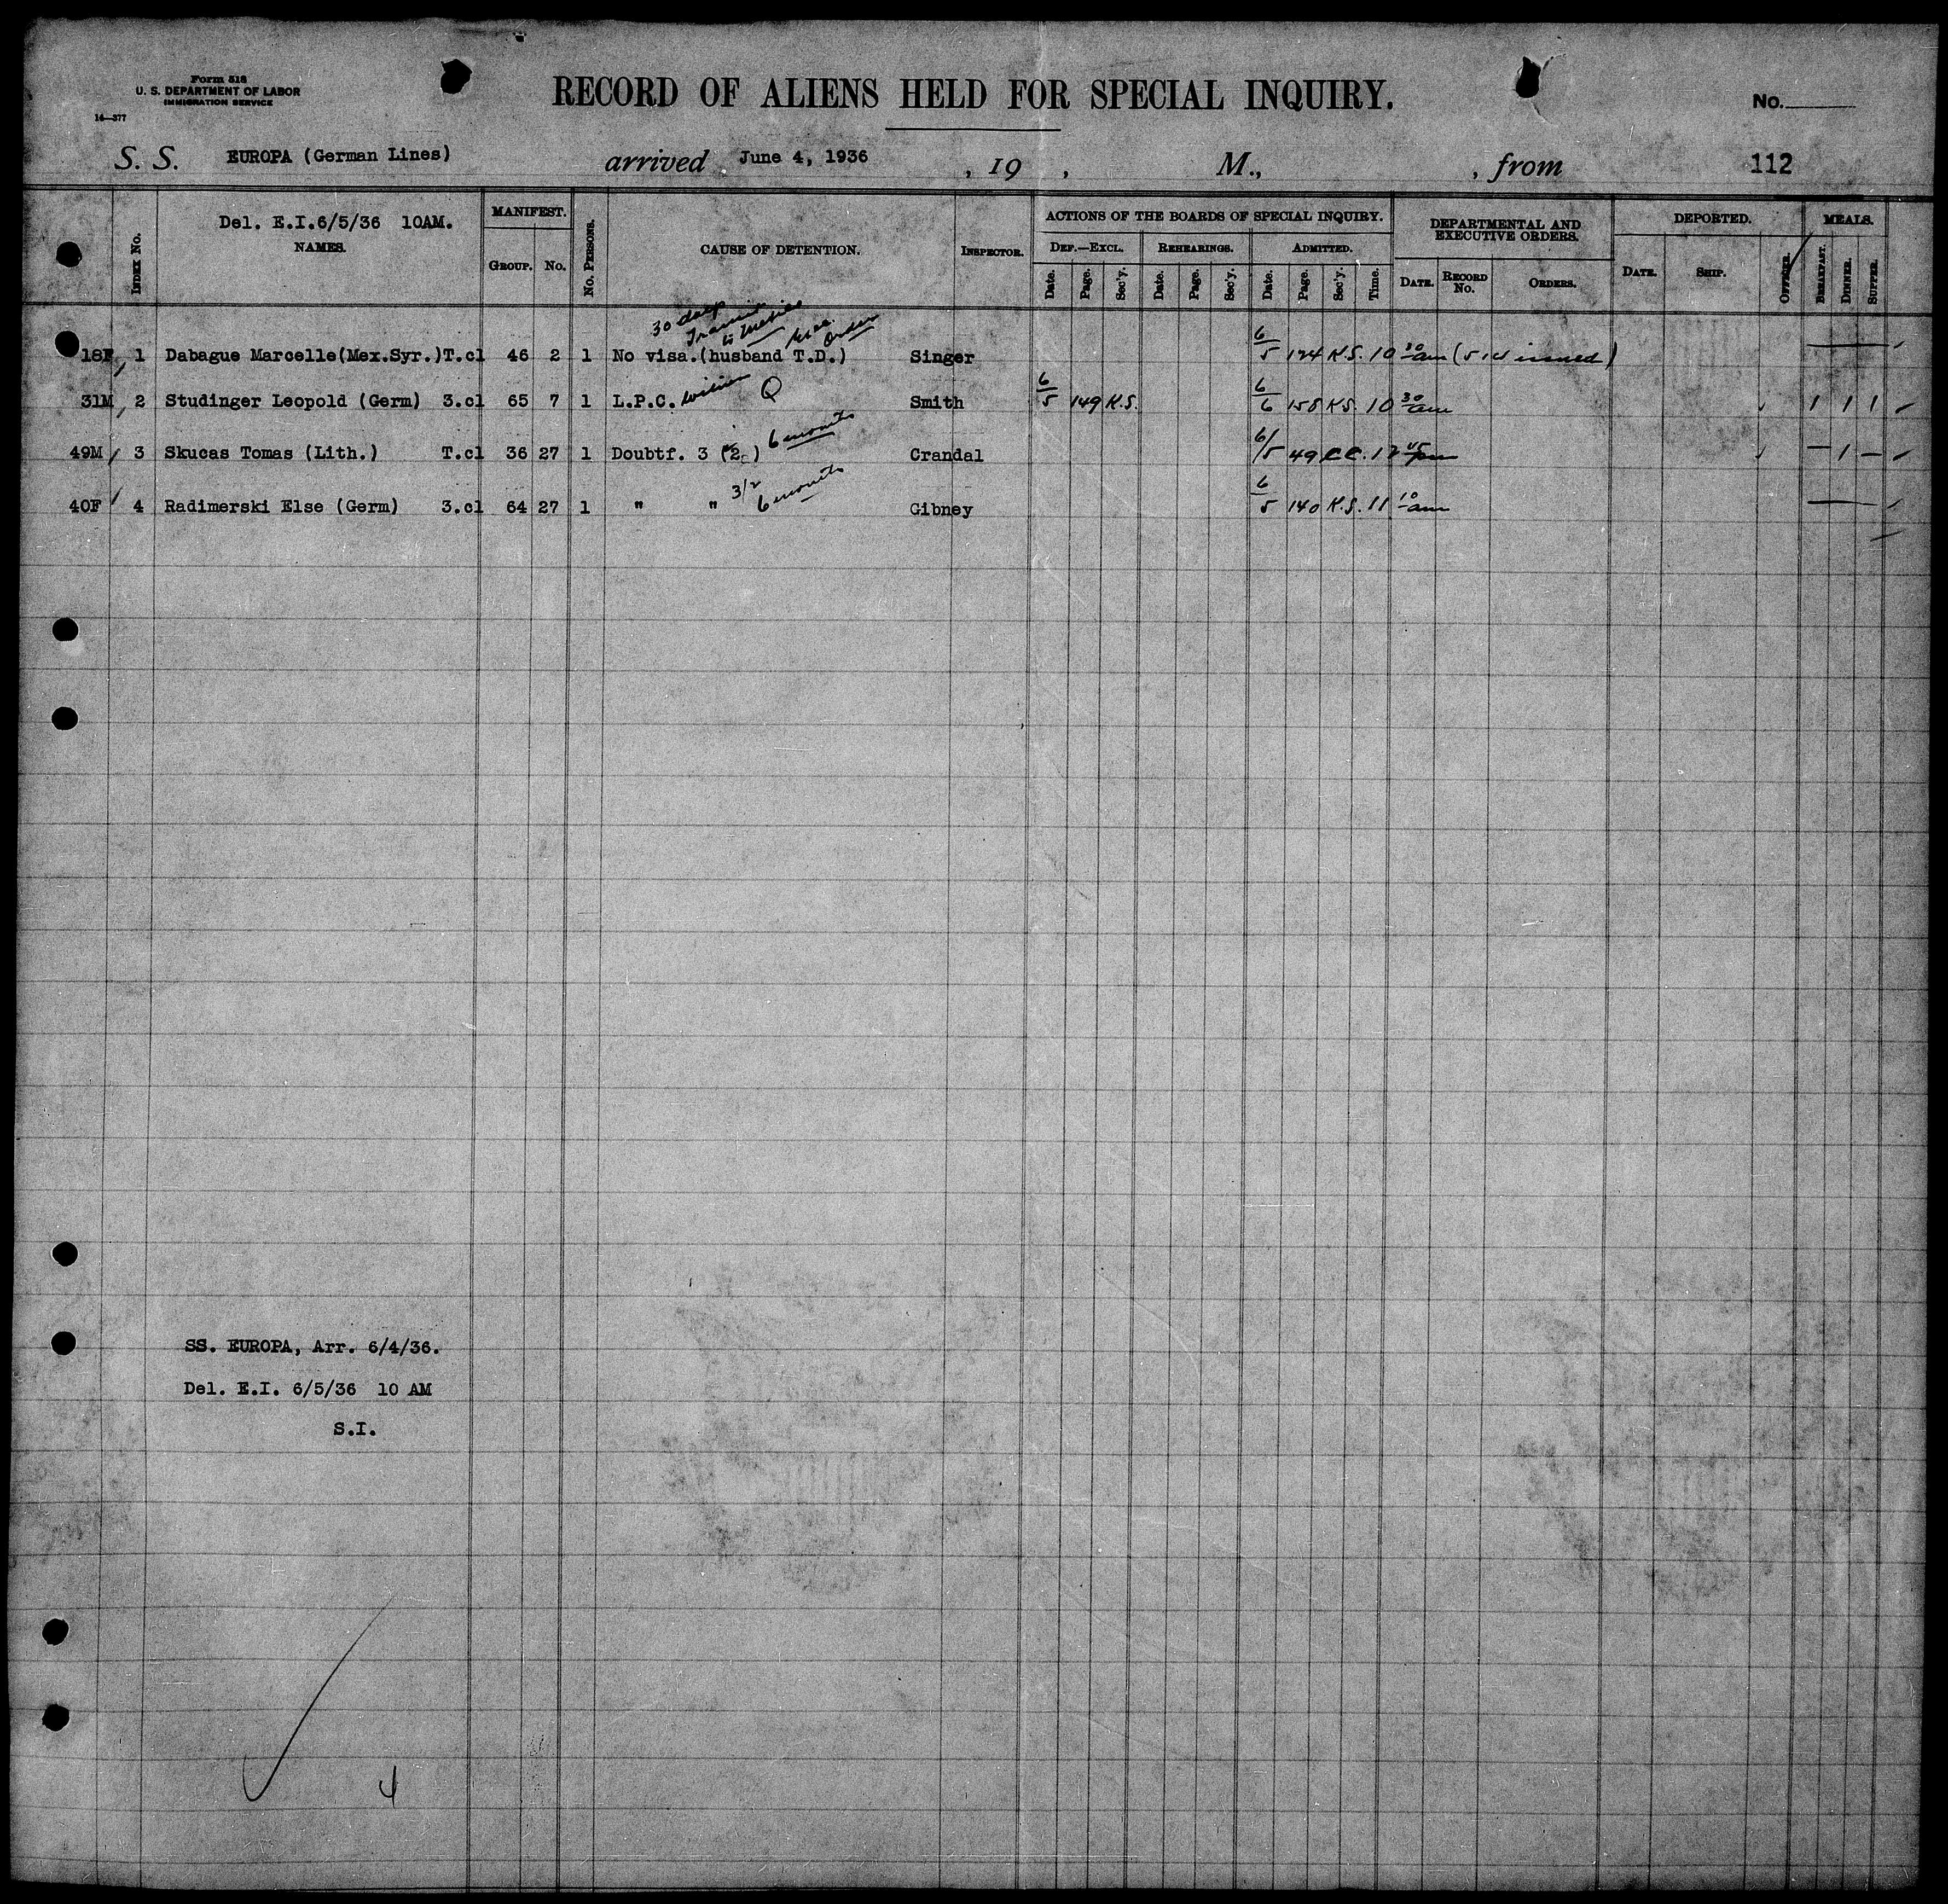 Form 518
U. S. DEPARTMENT OF LABOR
IMMIGRATION SERVICE
14—377
RECORD OF ALIENS HELD FOR SPECIAL INQUIRY.
No.
S. S. EUROPA (German Lines) arrived June 4, 1936 , 19 , M., , from 112
Del. E.I.6/5/36 10AM.
INDEX No. NAMES. MANIFEST. GROUP. No. No. PERSONS. CAUSE OF DETENTION. INSPECTOR.
ACTIONS OF THE BOARDS OF SPECIAL INQUIRY.
DEF.—EXCL. REHEARINGS. ADMITTED.
Date. Page. Sec'y. Date. Page. Sec'y. Date. Page. Sec'y. Time.
DEPARTMENTAL AND EXECUTIVE ORDERS.
DATE. RECORD No. ORDERS.
DEPORTED.
DATE. SHIP. OFFICER.
MEALS.
BREAKFAST. DINNER. SUPPER.
30 days Transit to Mexico Order
18F 1 Dabague Marcelle(Mex.Syr.)T.cl 46 2 1 No visa.(husband T.D.) Singer 6/5 124 K.S. 10 30 am (514 issued)
31M 2 Studinger Leopold (Germ) 3.cl 65 7 1 L.P.C. Q Smith 6/5 149 K.S. 6/6 158 K.S. 10 30 am 1 1 1
49M 3 Skucas Tomas (Lith.) T.cl 36 27 1 Doubtf. 3 (2) 6 months Crandal 6/5 49 C.C. 12 45 pm — 1 —
40F 4 Radimerski Else (Germ) 3.cl 64 27 1 " " 3/2 6 months Gibney 6/5 140 K.S. 11 10 am
SS. EUROPA, Arr. 6/4/36.
Del. E.I. 6/5/36 10 AM
S.I.
4